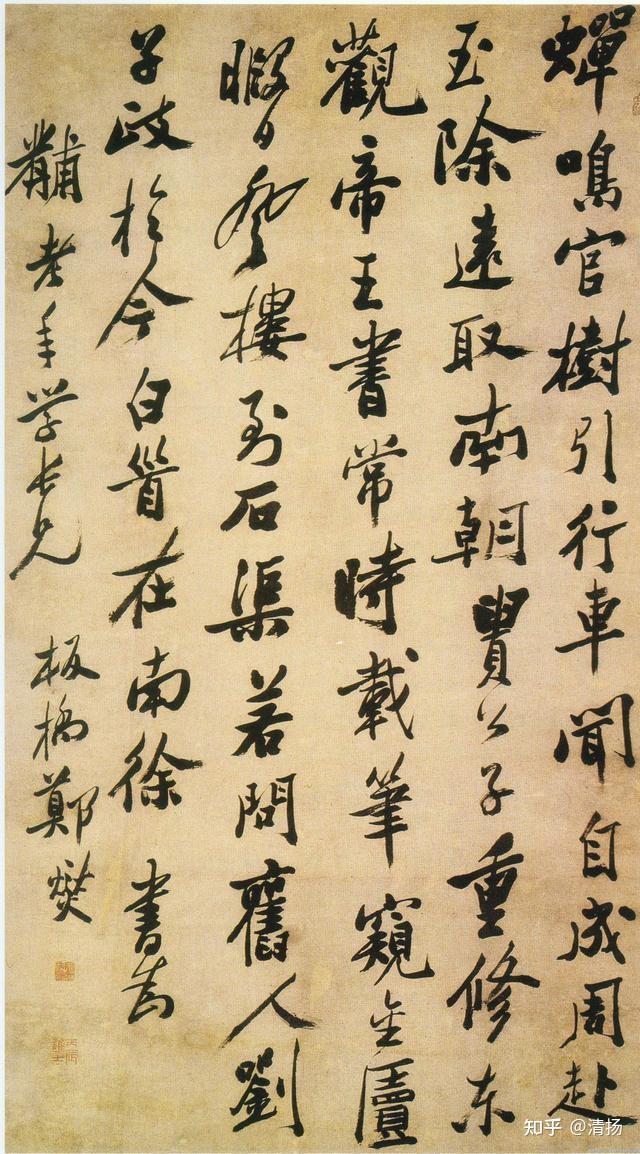 蟬鳴官樹引行車聞自成周赴
玉除遠取南朝貴公子重修东
觀帝王書常時載筆窺金匱
暇日登樓到石渠若問舊人劉
子政於今白首在南徐 書為
黼老年學長兄 板橋鄭燮
丙辰進士
知乎 @清扬